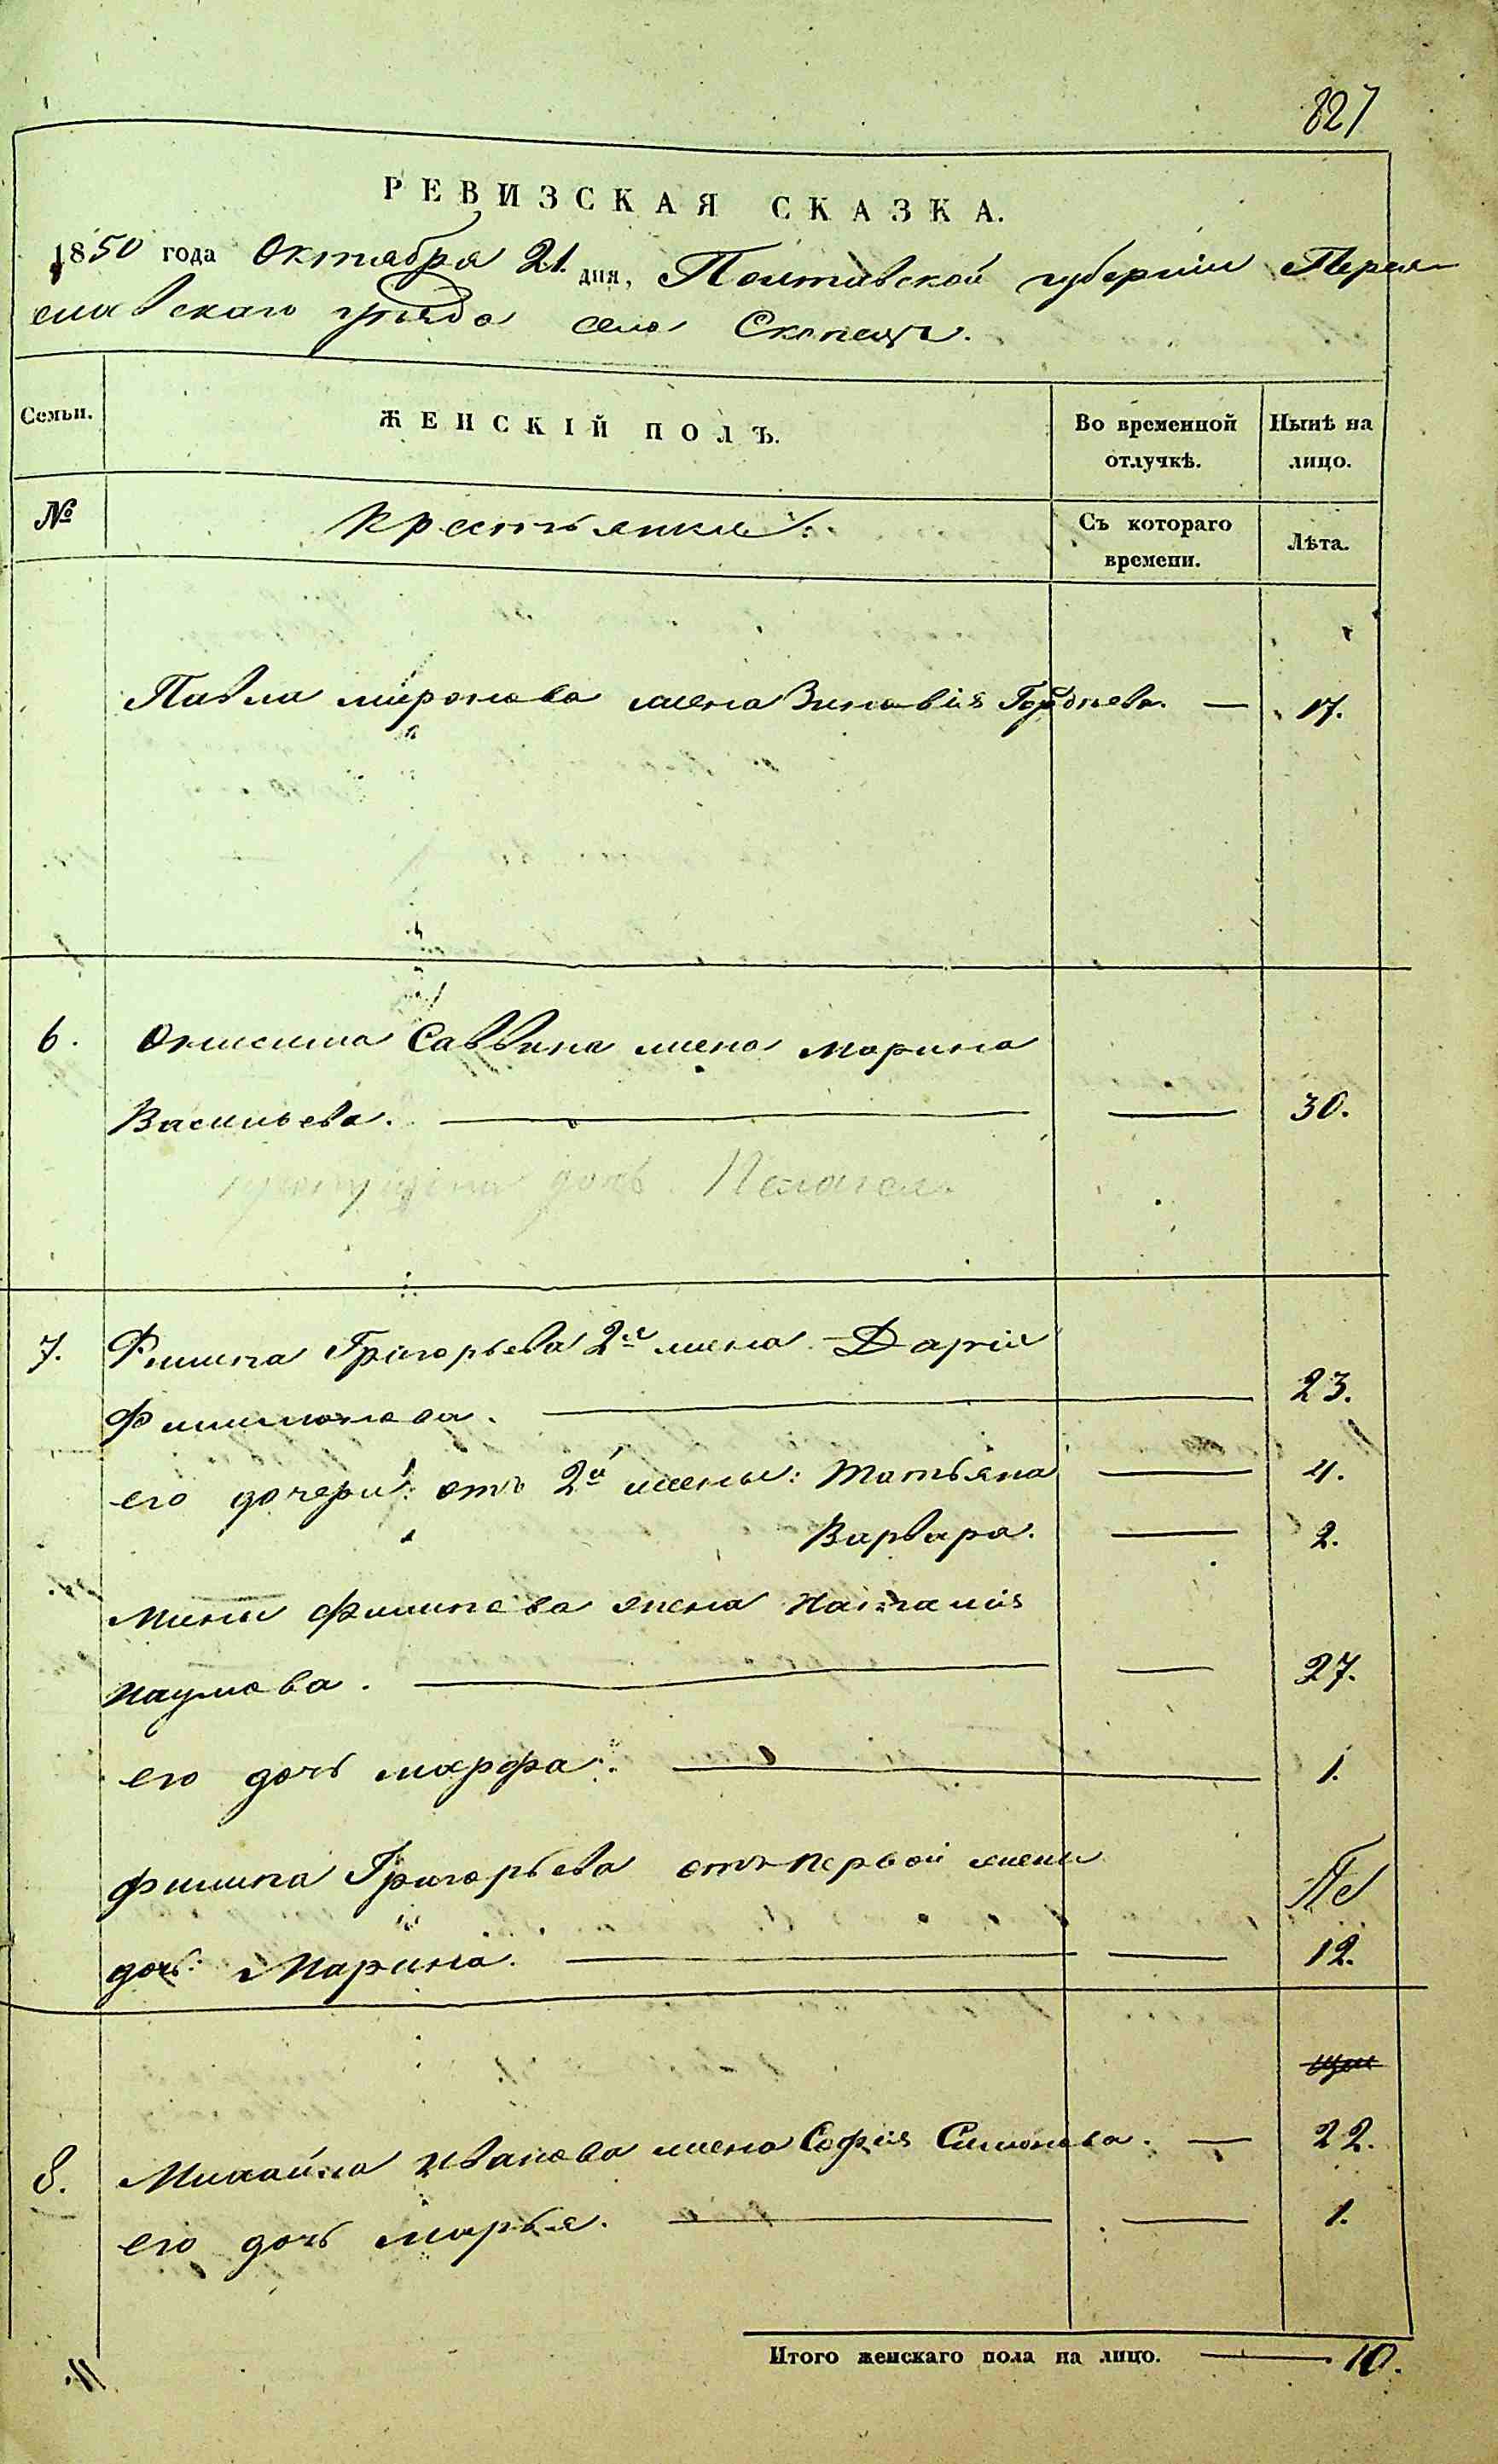 827
РЕВИЗСКАЯ СКАЗКА.
1850 года Октября 21. дня, Полтавской губернии Перея-
славскаго уезда село Скопецъ.
Семьи.
ЖЕНСКІЙ ПОЛЪ.
Во временной
отлучкѣ.
Нынѣ на
лицо.
№
Крестьянки:
Съ котораго
времени.
Лѣта.
Павла Миронова жена Зиновія Гордѣева. — 17.
6. Онисима Саввина жена Марина
Васильева. — — 30.
пропущена дочь Пелагея
7. Филипа Григорьева 2я жена Дарія
Филимонова. — 23.
его дочери: отъ 2й жены: Татьяна — 4.
Варвара. — 2.
Мины Филипова жена Наталія
Наумова. — — 27.
его дочь Марфа. — 1.
Филипа Григорьева отъ первой жены
дочь Марина. — — 12.
8. Михайла Иванова жена Софія Симонова. — 22.
его дочь Марья. — — 1.
Итого женскаго пола на лицо. — 10.